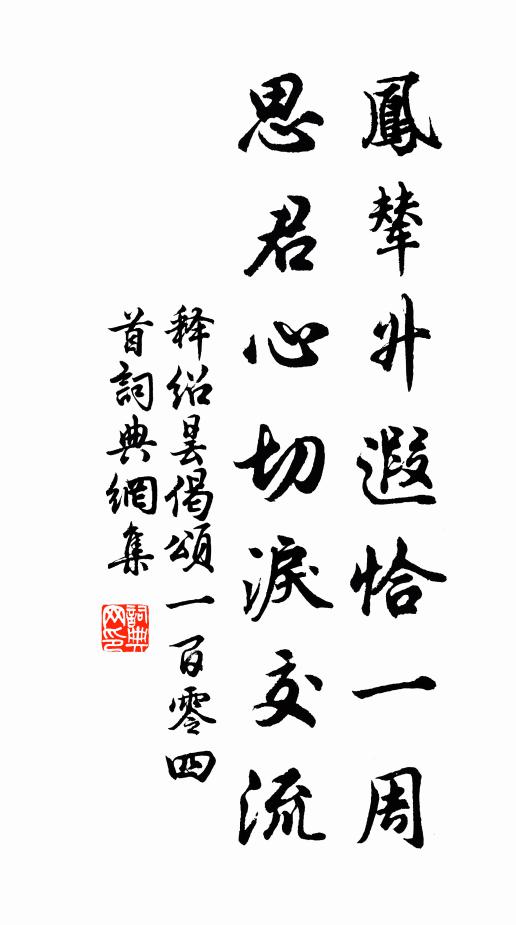 鳳輦升遐恰一周
思君心切淚交流
释紹昙偈頌一百零四
首詞典網集
詞典网印